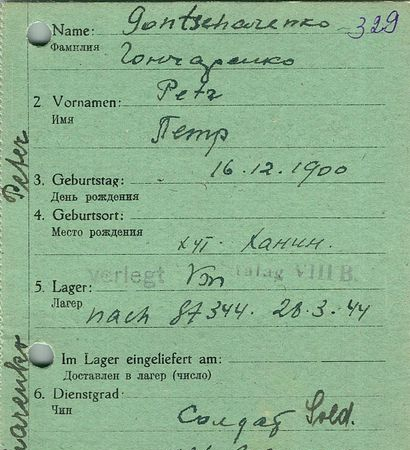 Name: Gontscharenko 329
Фамилия Гончаренко
2. Vornamen: Petr
Имя Петр
16.12.1900
3. Geburtstag:
День рождения
4. Geburtsort:
Место рождения хут. Ханин.
verlegt Stalag VIII B
5. Lager: Von
Лагерь nach 87344. 28.3.44
Im Lager eingeliefert am:
Доставлен в лагерь (число)
6. Dienstgrad:
Чин Солдат Sold.
Peter